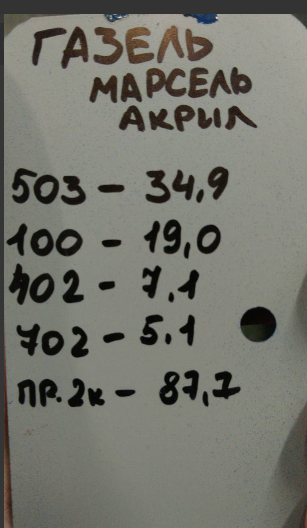 ГАЗЕЛЬ
МАРСЕЛЬ
АКРИЛ
503 - 34,9
100 - 19,0
402 - 7.1
702 - 5.1
ПР. 2к - 87,7